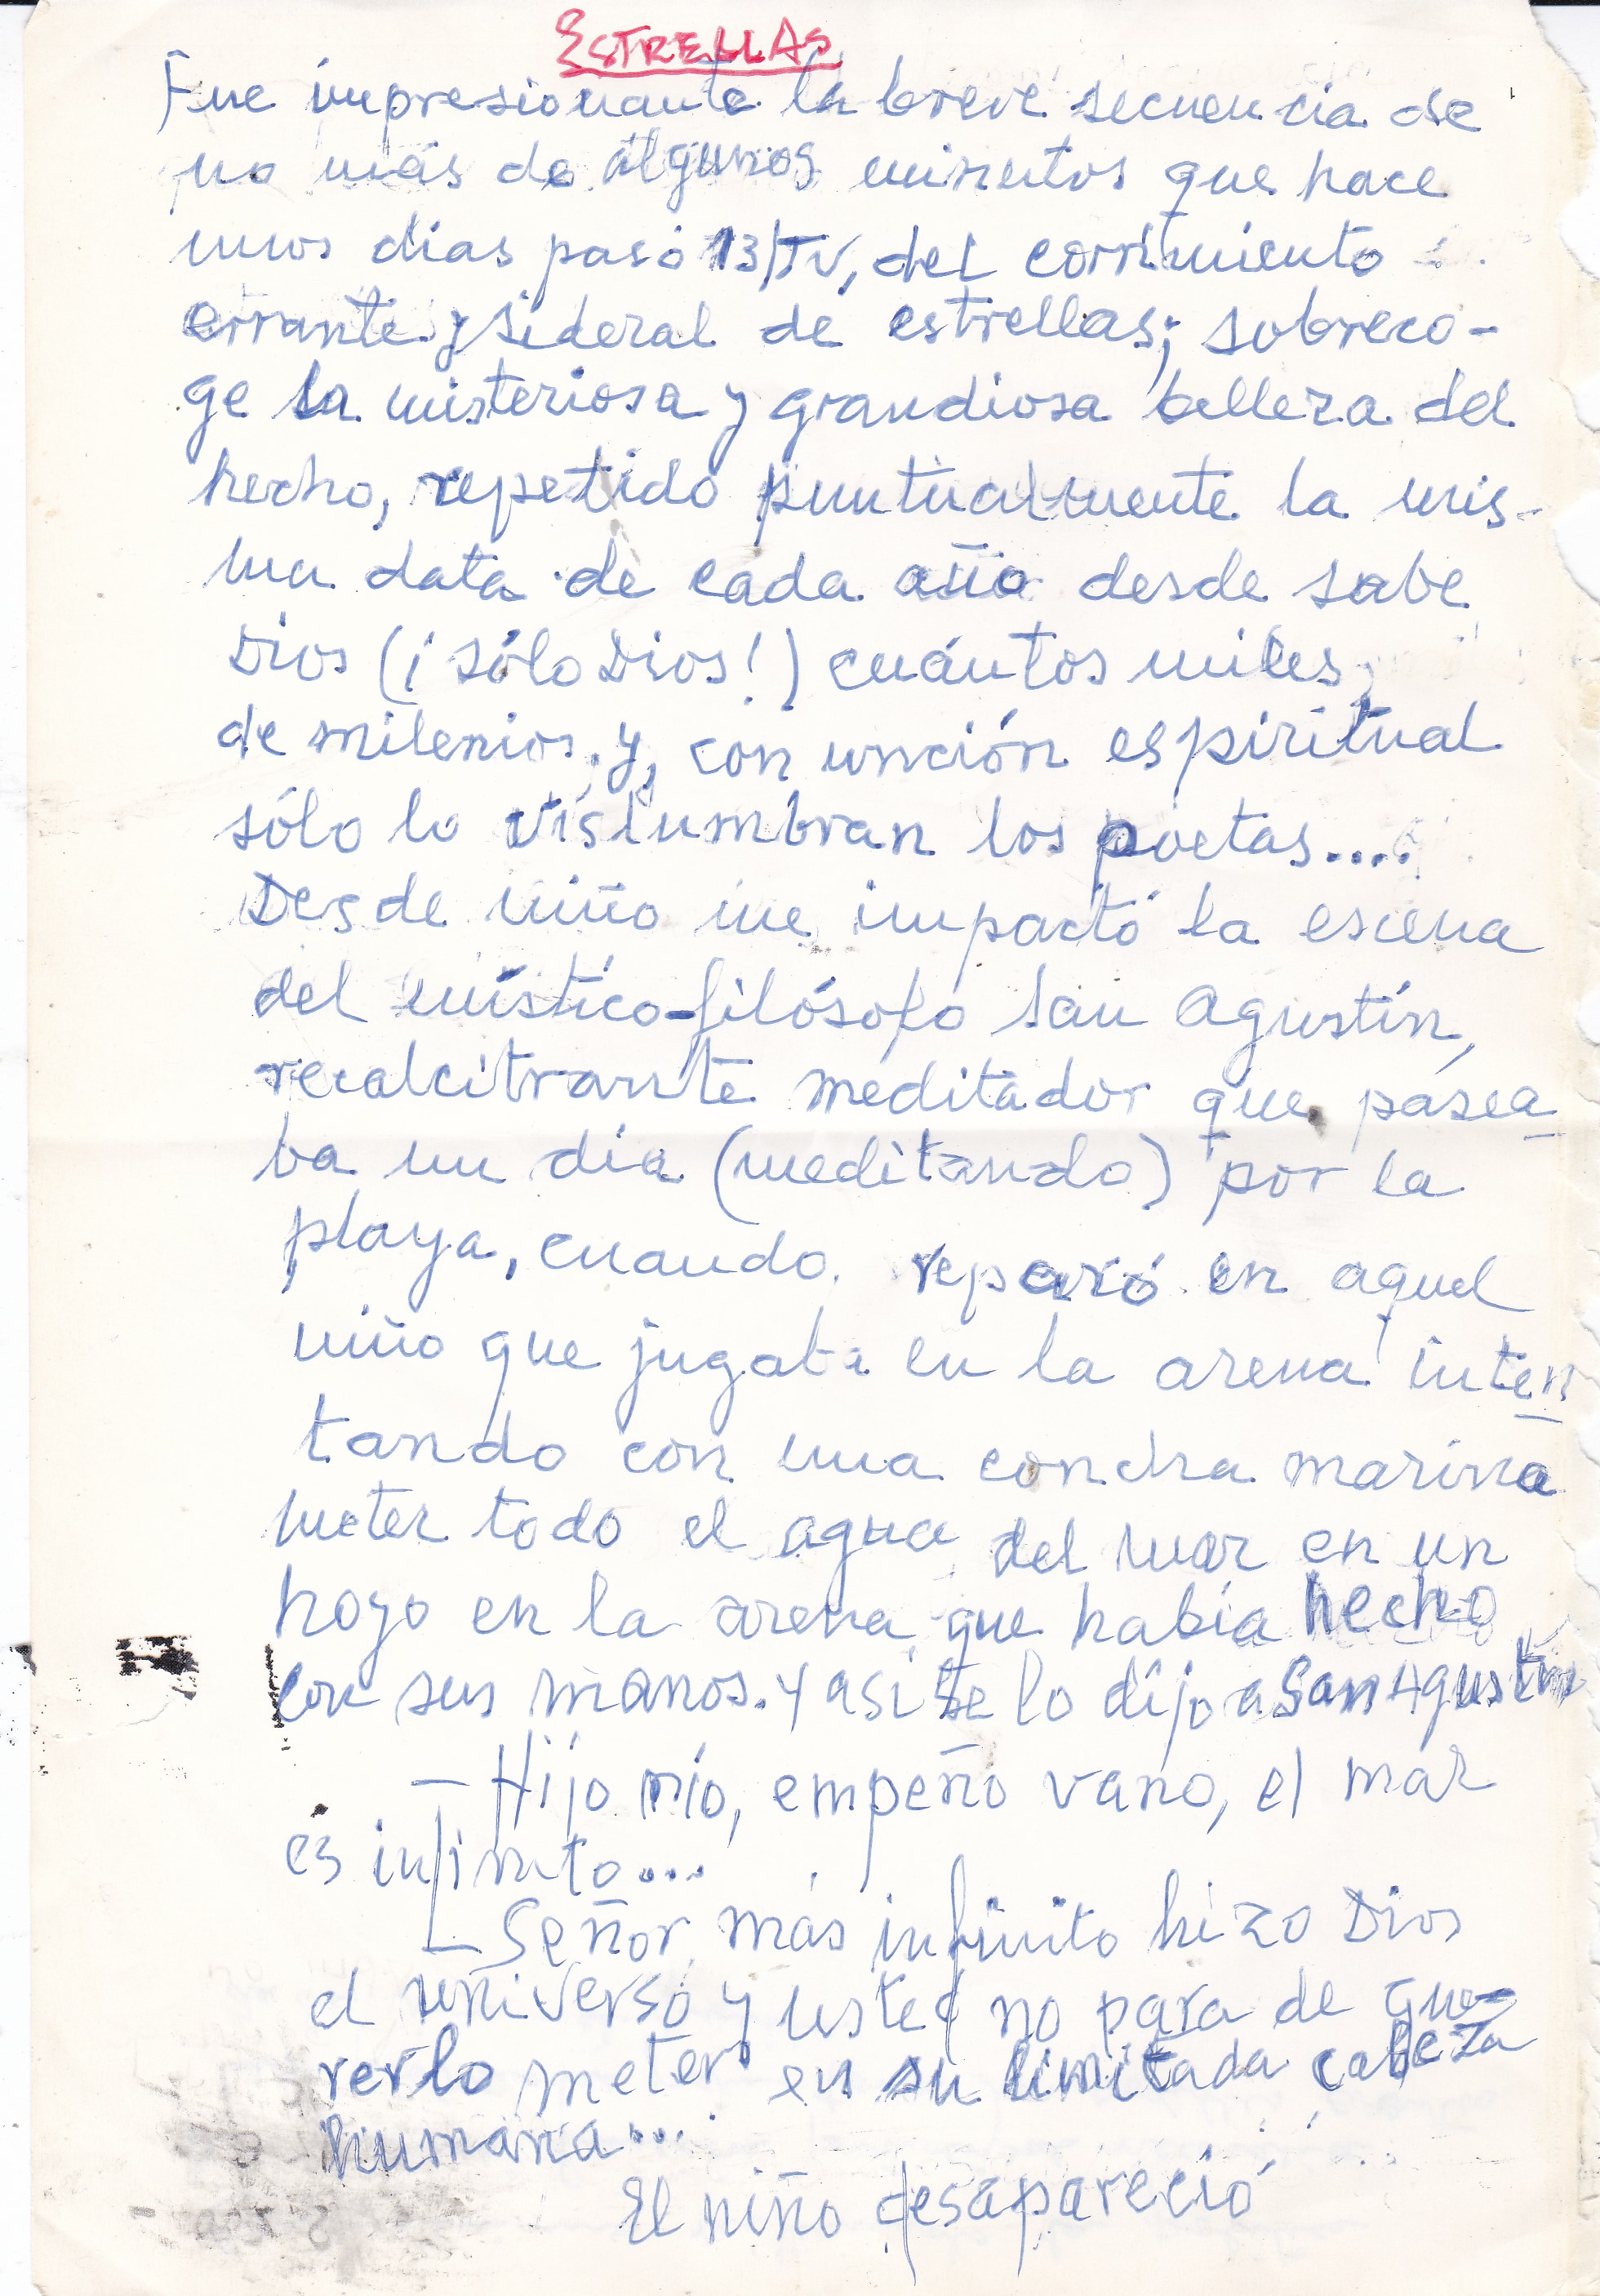 ESTRELLAS
Fue impresionante la breve secuencia de
no más de algunos minutos que hace
unos días pasó 13/TV, del corrimiento
errante y sideral de estrellas; sobreco-
ge la misteriosa y grandiosa belleza del
hecho, repetido puntualmente la mis-
ma data de cada año desde sabe
Dios (¡sólo Dios!) cuántos miles
de milenios, y, con unción espiritual
sólo lo vislumbran los poetas....
Desde niño me impactó la escena
del místico-filósofo San Agustín,
recalcitrante meditador que pasea
ba un día (meditando) por la
playa, cuando reparó en aquel
niño que jugaba en la arena inten
tando con una concha marina
meter todo el agua del mar en un
hoyo en la arena que había hecho
con sus manos. Y así se lo dijo a San Agustín
— Hijo mío, empeño vano, el mar
es infinito...
— Señor, más infinito hizo Dios
el universo y usted no para de que-
rerlo meter en su limitada cabeza
humana...
El niño desapareció